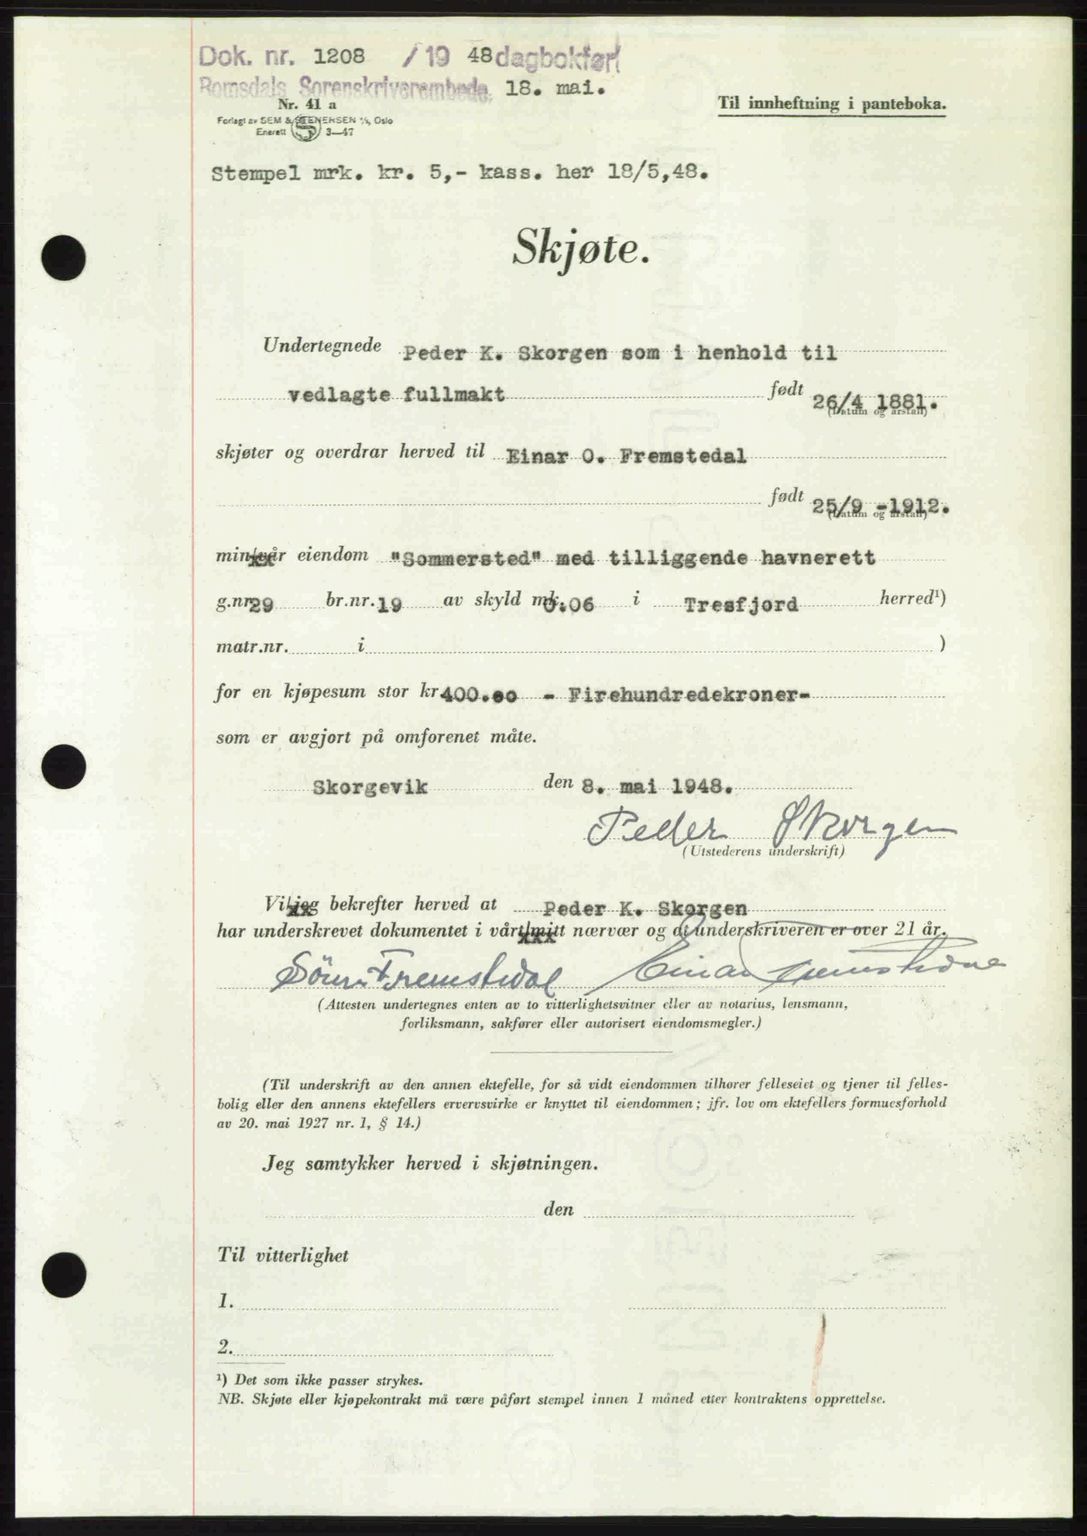 Dok. nr. 1208 /19 48 dagbokført
Romsdals Sorenskriverembede, 18. mai.
Nr. 41 a
Til innheftning i panteboka.
Forlagt av SEM & STENERSEN A/S, Oslo
Enerett 3—47
Stempel mrk. kr. 5,- kass. her 18/5,48.
Skjøte.
Undertegnede Peder K. Skorgen som i henhold til
vedlagte fullmakt født 26/4 1881.
(Datum og årstall)
skjøter og overdrar herved til Einar O. Fremstedal
født 25/9 -1912.
(Datum og årstall)
min/vår eiendom "Sommersted" med tilliggende havnerett
g.nr. 29 br.nr. 19 av skyld mk. 0.06 i Tresfjord herred¹)
matr.nr. i )
for en kjøpesum stor kr. 400.oo - Firehundredekroner-
som er avgjort på omforenet måte.
Skorgevik den 8. mai 1948.
Peder Skorgen
(Utstederens underskrift)
Vi/jeg bekrefter herved at Peder K. Skorgen
har underskrevet dokumentet i vårt/mitt nærvær og at underskriveren er over 21 år.
Fremstedal Einar
(Attesten undertegnes enten av to vitterlighetsvitner eller av notarius, lensmann,
forliksmann, sakfører eller autorisert eiendomsmegler.)
(Til underskrift av den annen ektefelle, for så vidt eiendommen tilhører felleseiet og tjener til felles-
bolig eller den annens ektefellers ervervsvirke er knyttet til eiendommen; jfr. lov om ektefellers formuesforhold
av 20. mai 1927 nr. 1, § 14.)
Jeg samtykker herved i skjøtningen.
den
Til vitterlighet
1.
2.
¹) Det som ikke passer strykes.
NB. Skjøte eller kjøpekontrakt må være påført stempel innen 1 måned etter kontraktens opprettelse.